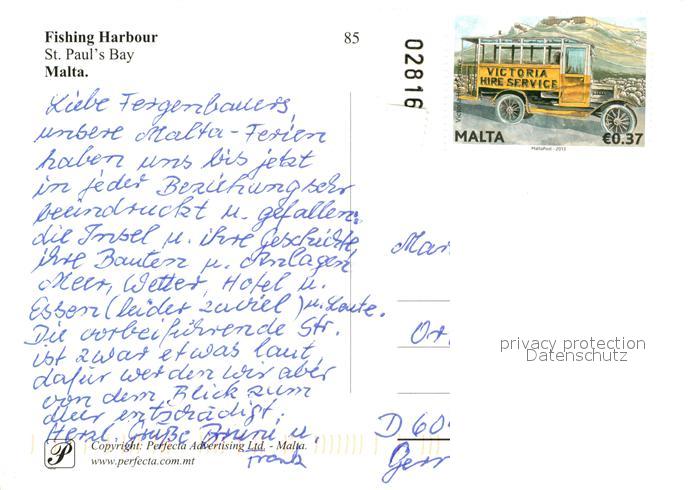 Fishing Harbour
St. Paul's Bay
Malta.
85
02816
VICTORIA
HIRE SERVICE
MALTA
€0.37
MaltaPost - 2013
Liebe Fergenbauers,
unsere Malta-Ferien
haben uns bis jetzt
in jeder Beziehung sehr
beeindruckt u. gefallen:
die Insel u. ihre Geschichte,
ihre Bauten u. Anlagen
Meer, Wetter, Hotel u.
Essen (leider zuviel) u. Leute.
Die vorbeiführende Str.
ist zwar etwas laut,
dafür werden wir aber
von dem Blick zum
Meer entschädigt.
Herzl. Grüße Bruni u.
Frank
Mar
Or
D 60
Gerr
privacy protection
Datenschutz
Copyright: Perfecta Advertising Ltd. - Malta.
www.perfecta.com.mt
P